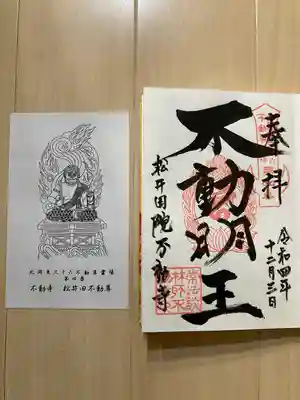 奉拝
不動明王
松井田院不動寺
令和四年
十二月三日
北関東三十六不動尊霊場
第四番
不動寺 松井田不動尊